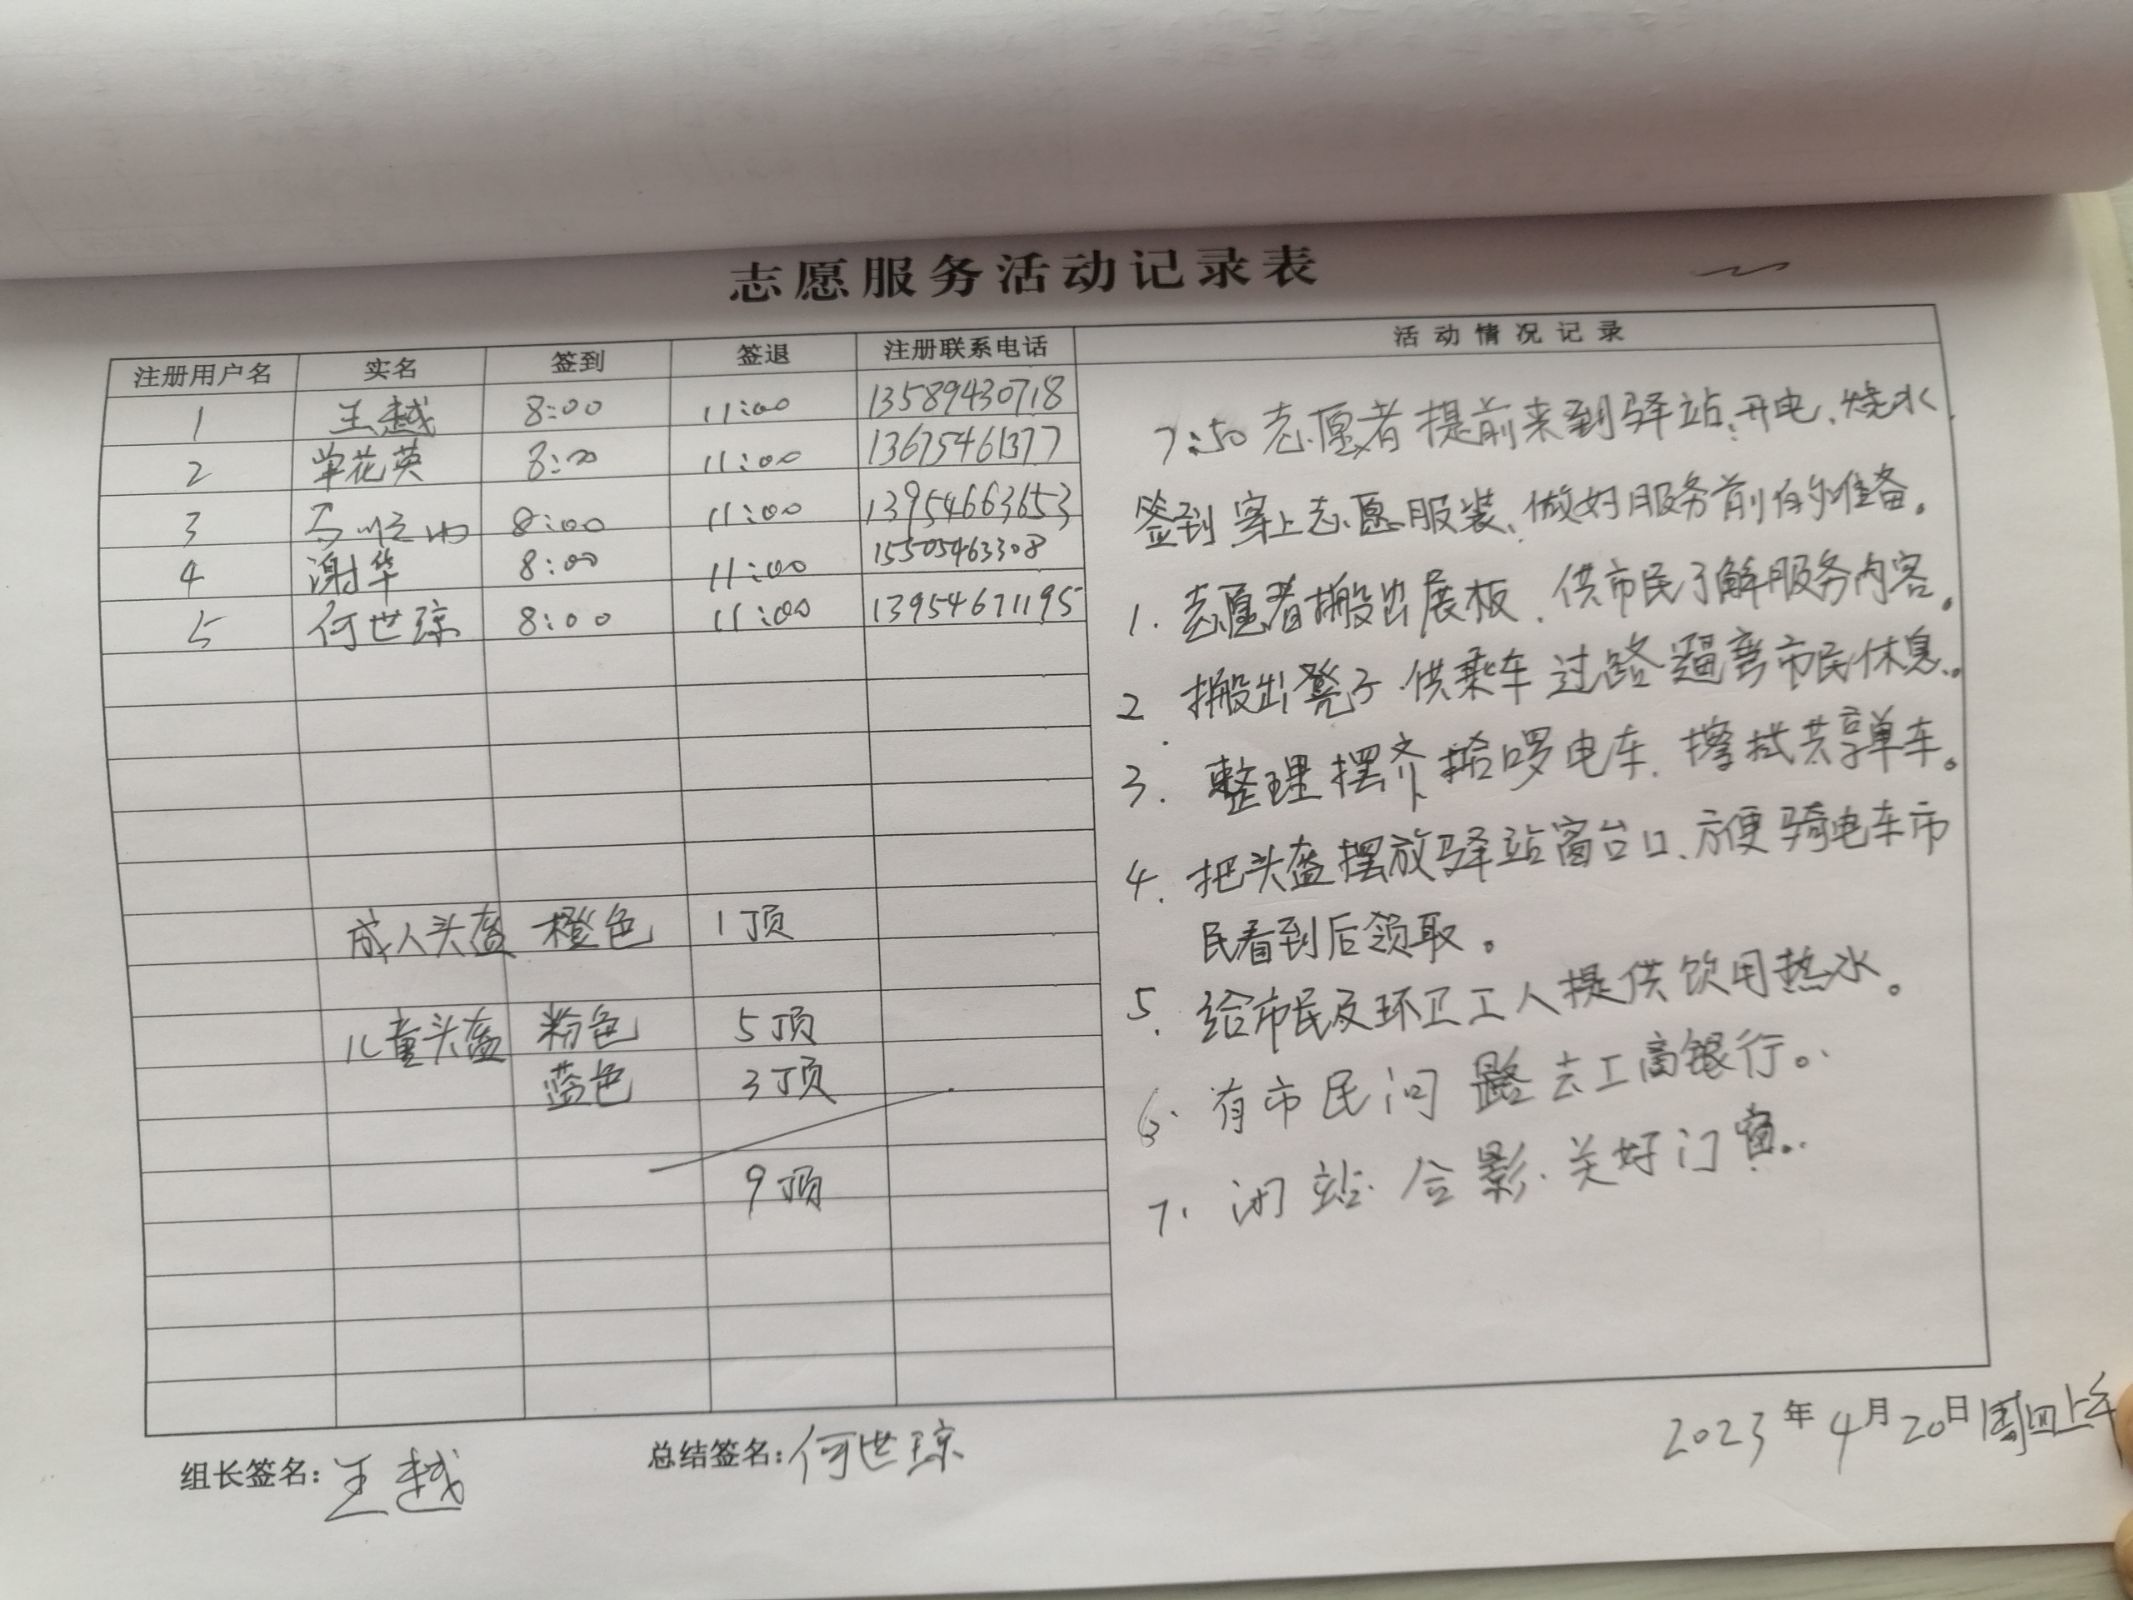 志愿服务活动记录表
注册用户名 实名 签到 签退 注册联系电话 活动情况记录
1 王越 8:00 11:00 13589430718
2 单花英 8:00 11:00 13675461377
3 8:00 11:00 13954663653
4 谢华 8:00 11:00 15505463308
5 何世琼 8:00 11:00 13954671195
成人头盔 橙色 1顶
儿童头盔 粉色 5顶
蓝色 3顶
9顶
7:50志愿者提前来到驿站、开电、烧水、
签到穿上志愿服装、做好服务前的准备。
1. 志愿者搬出展板、供市民了解服务内容。
2. 搬出凳子供乘车过路遛弯市民休息。
3. 整理摆齐哈啰电车、擦拭共享单车。
4. 把头盔摆放驿站窗台口、方便骑电车市
民看到后领取。
5. 给市民及环卫工人提供饮用热水。
6. 有市民问路去工商银行。
7. 闭站合影、关好门窗。
组长签名:王越 总结签名:何世琼 2023年4月20日周四上午